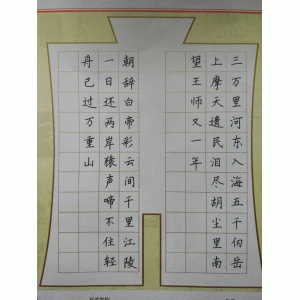 三万里河东入海五千仞岳
上摩天遗民泪尽胡尘里南
望王师又一年
朝辞白帝彩云间千里江陵
一日还两岸猿声啼不住轻
舟已过万重山